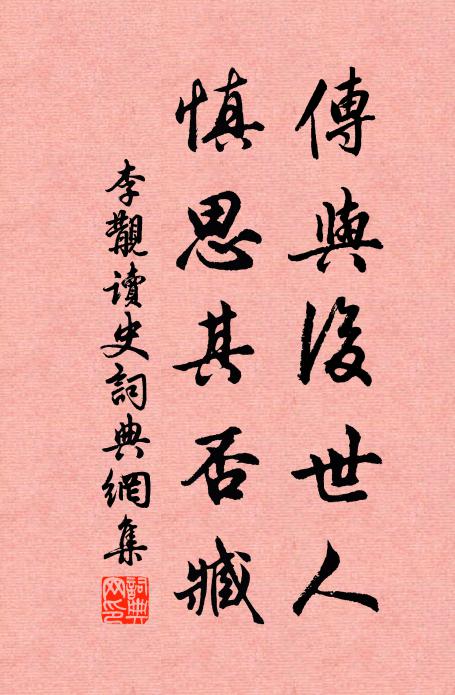 傳與後世人
慎思其否臧
李覯讀史詞典網集
詞典
网印